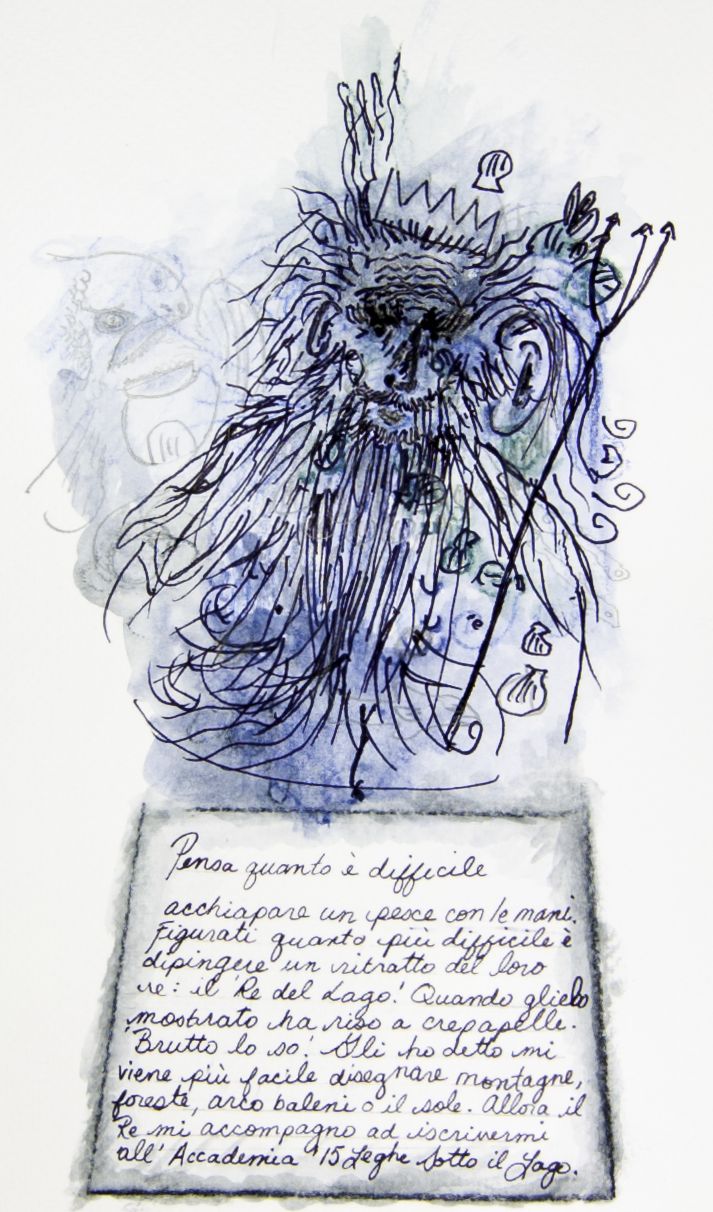 Pensa quanto è difficile
acchiapare un pesce con le mani.
Figurati quanto più difficile è
dipingere un ritratto del loro
re: il 'Re del Lago! Quando glielo
mostrato ha riso a crepapelle.
'Brutto lo so! Gli ho detto mi
viene più facile disegnare montagne,
foreste, arco baleni o il sole. Allora il
Re mi accompagno ad iscrivermi
all' Accademia "15 Leghe Sotto il Lago.